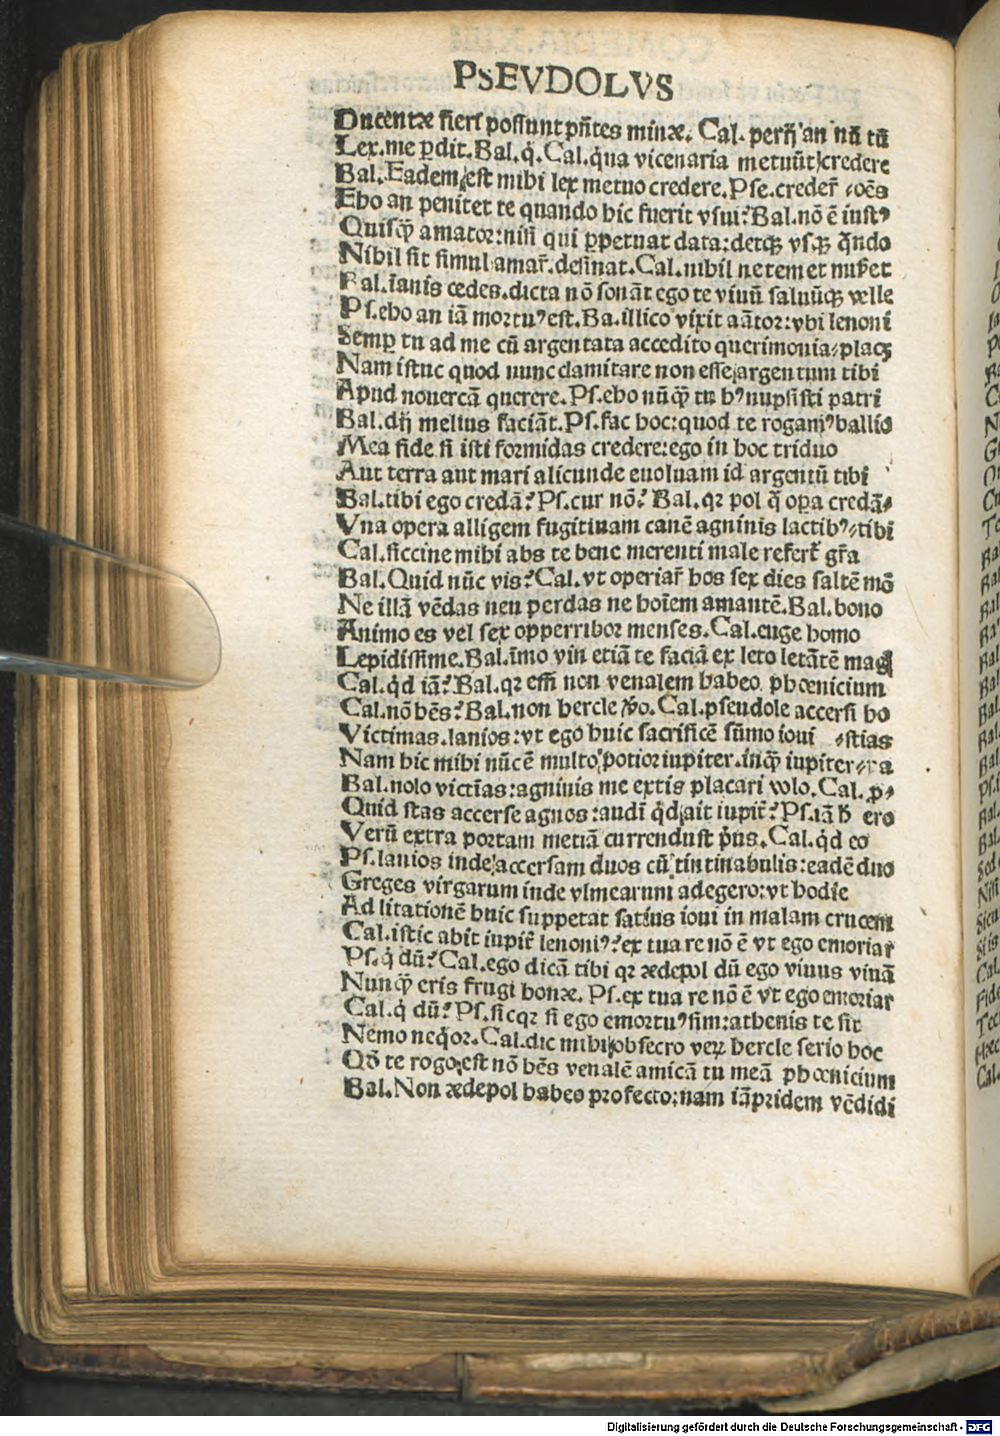 PSEVDOLVS
Ducentæ fieri possunt pñtes minæ. Cal. an nũ tũ
Lex.me ꝑdit.Bal.q̇.Cal.q̇na vicenaria metuũt credere
Bal.Eadem est mihi lex metuo credere.Pse.creder̃ oẽs
Eho an penitet te quando hic fuerit vsui?Bal.nõ ẽ iustꝰ
Quisq̃ amator:nisi qui ꝑpetuat data:detqꝫ vsqꝫ q̃ndo
Nihil sit simul amar̃.desinat.Cal.nihil ne te
Bal.ĩanis cedes.dicta nõ sonãt ego te viuũ saluũqꝫ velle
Ps.eho an iã mortuꝰest.Ba.illico vixit aãtor:vbi lenoni
Semꝑ tu ad me cũ argentata accedito querimonia
Nam istuc quod nunc clamitare non esse argentum tibi
Apud nouercã querere.Ps.eho nũq̃ tu hꝰnupsisti patri
Bal.dij melius faciãt.Ps.fac hoc:quod te rogamꝰballio
Mea fide si isti formidas credere:ego in hoc triduo
Aut terra aut mari alicunde euoluam id argentũ tibi
Bal.tibi ego credã?Ps.cur nõ? Bal.qꝛ pol q̃ oꝑa credã
Vna opera alligem fugitiuam canẽ agninis lactibꝰ tibi
Cal.siccine mihi abs te bene merenti male refert̃ gr̃a
Bal.Quid nũc vis?Cal.vt operiar̃ hos sex dies saltẽ mõ
Ne illã vẽdas neu perdas ne hoĩem amantẽ.Bal.bono
Animo es vel sex opperribor menses.Cal.euge homo
Lepidissime.Bal.ĩmo vin etiã te faciã ex leto letãtẽ mag
Cal.q̇d iã?Bal.qꝛ eñ non venalem habeo phœnicium
Cal.nõ hẽs?Bal.non hercle ꝟo.Cal.pseudole accersi ho
Victimas.lanios:vt ego huic sacrificẽ sũmo ioui stias
Nam hic mihi nũc ẽ multo potior iupiter.inq̃ iupiter
Bal.nolo victĩas:agninis me extis placari volo.Cal.ꝓ
Quid stas accerse agnos:audĩ q̇d ait iupit̃?Ps.iã h̃ ero
Verũ extra portam metiã currendust p̃us.Cal.q̇d eo
Ps.lanios inde accersam duos cũ tintinabulis:eadẽ duo
Greges virgarum inde vlmearum adegero:vt hodie
Ad litationẽ huic suppetat satius ioui in malam crucem
Cal.istic abit iupit̃ lenoniꝰ?ex tua re nõ ẽ vt ego emoriar
Ps.q̇ dũ?Cal.ego dicã tibi qꝛ ædepol dũ ego viuus viuã
Nunq̃ eris frugi bonæ.Ps.ex tua re nõ ẽ vt ego emoriar
Cal.q̇ dũ?Ps.sicqꝛ si ego emortuꝰsim:athenis te sit
Nemo neq̇or.Cal.dic mihi obsecro veꝝ hercle serio hoc
Qõ te rogo est nõ hẽs venalẽ amicã tu meã phœnicium
Bal.Non ædepol habeo profecto:nam iãpridem vẽdidi
Digitalisierung gefördert durch die Deutsche Forschungsgemeinschaft - DFG